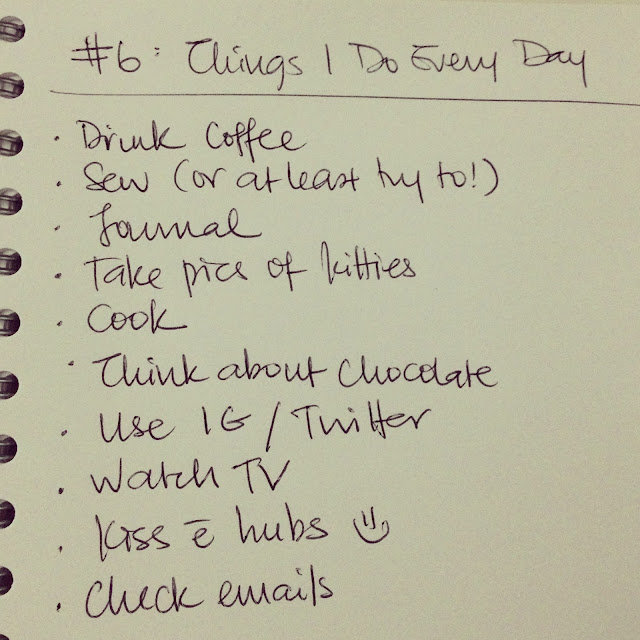 #6: Things I Do Every Day
· Drink Coffee
· Sew (or at least try to!)
· Journal
· Take pics of kitties
· Cook
· Think about chocolate
· Use IG / Twitter
· Watch TV
· Kiss ē hubs
· Check emails